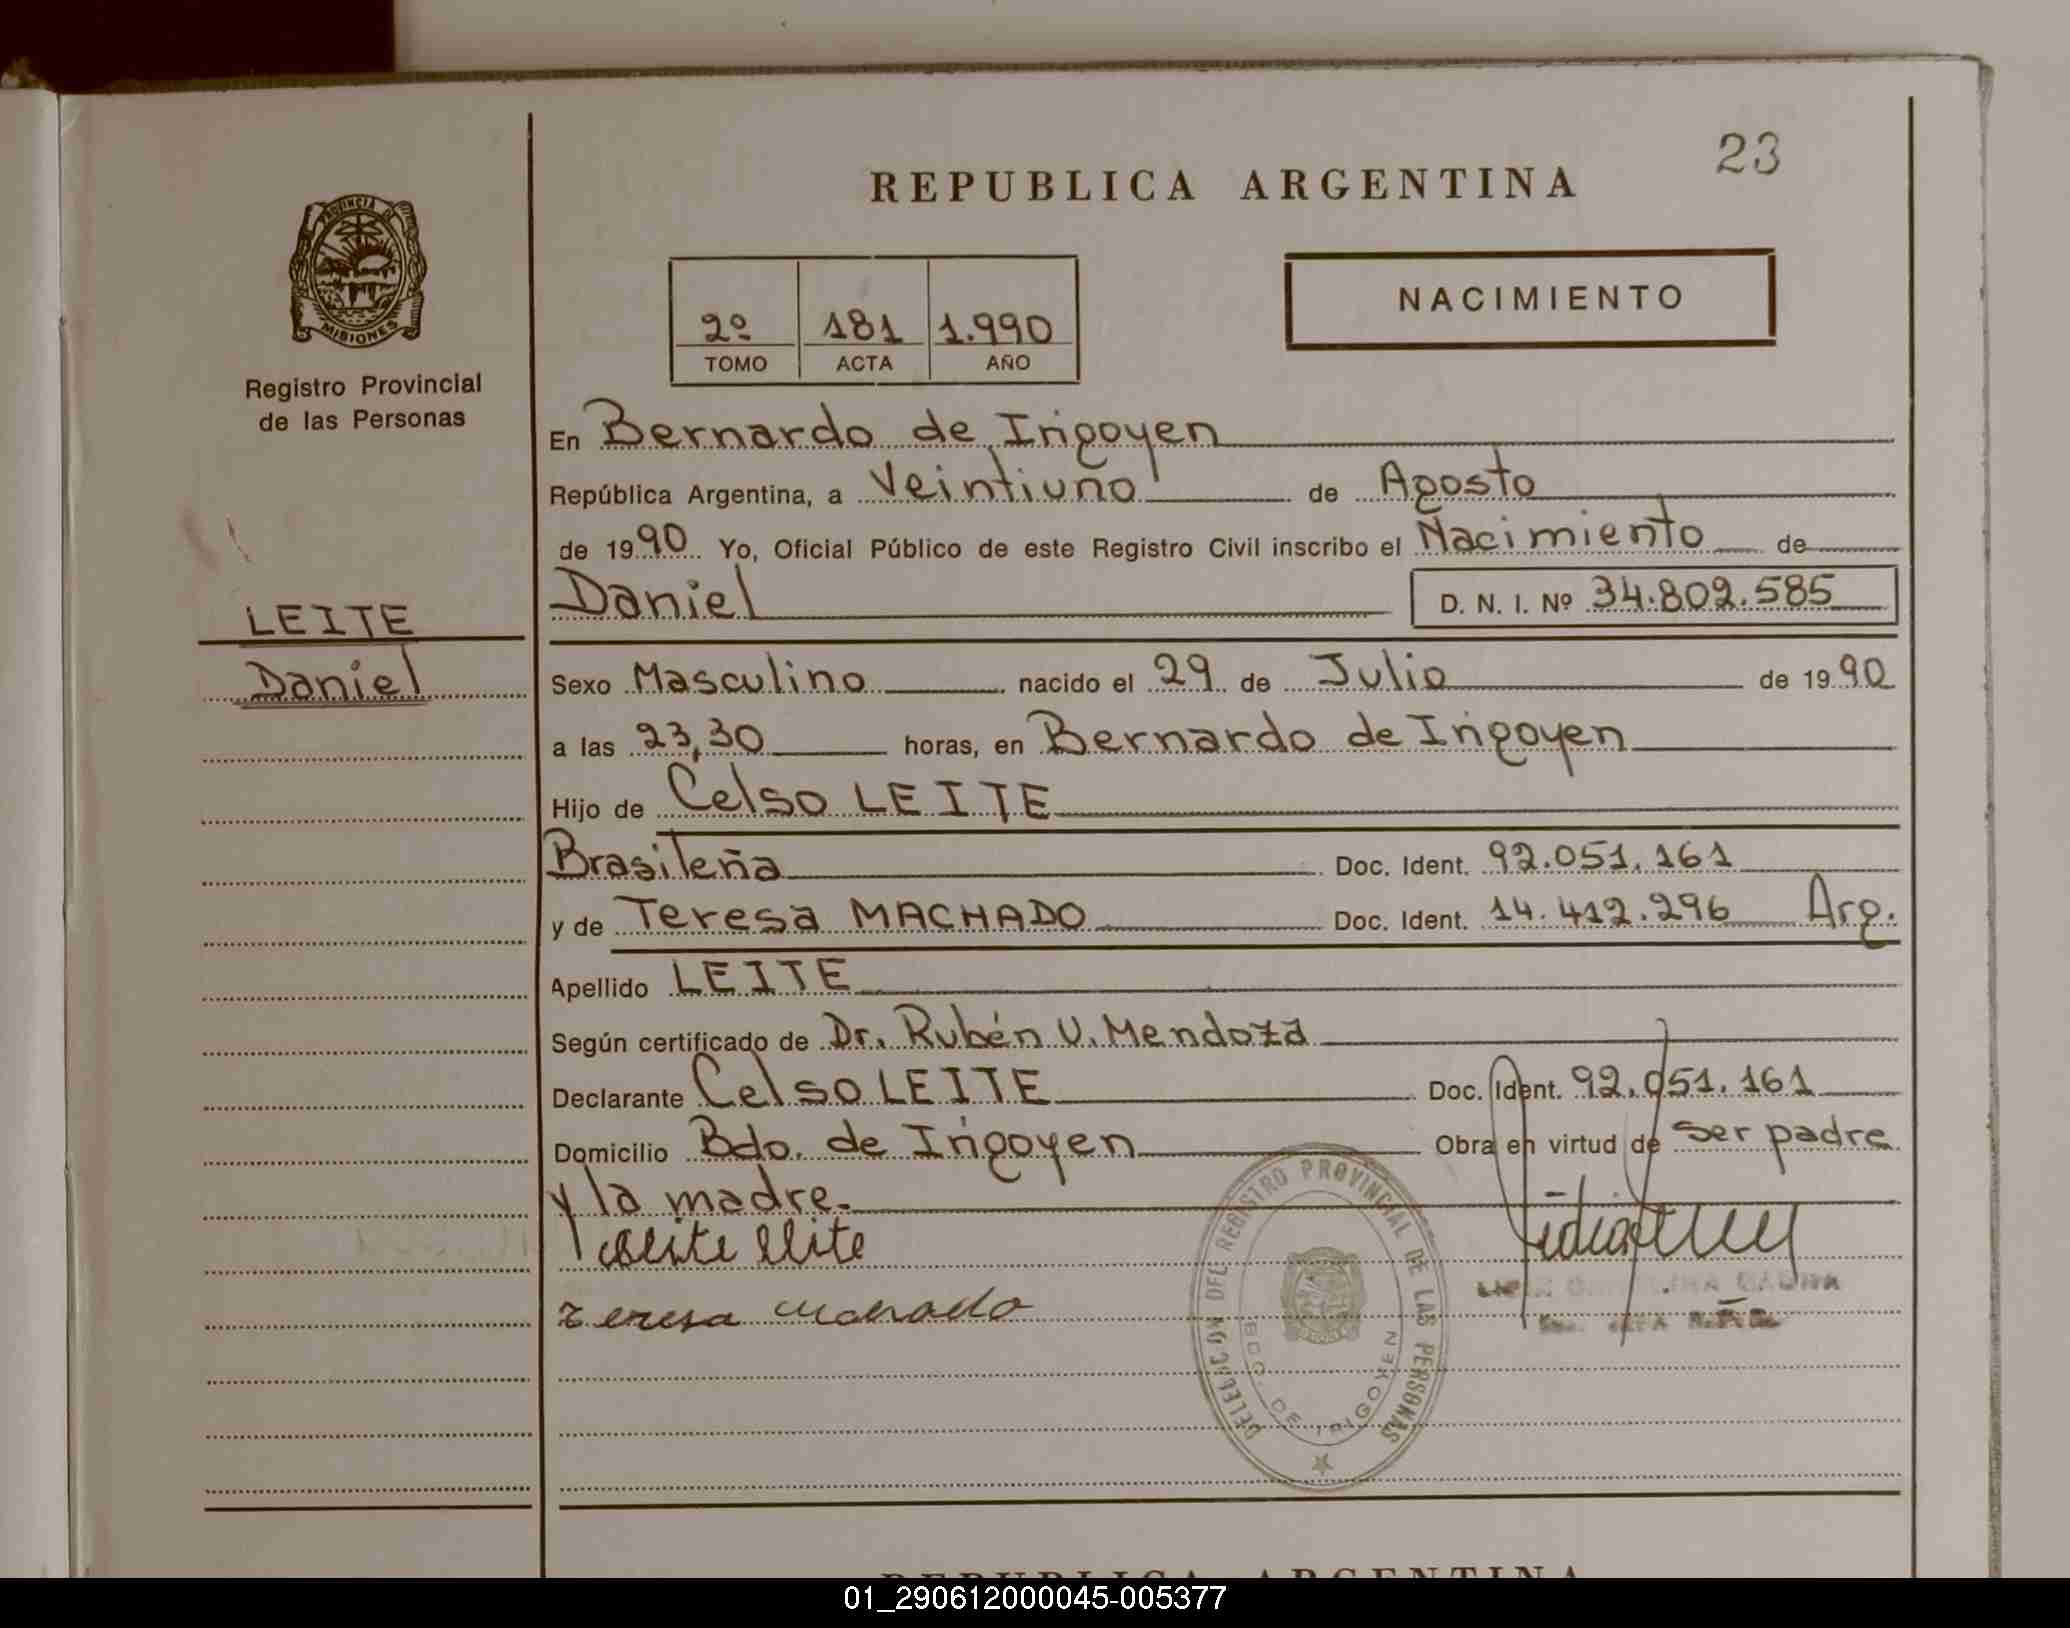 23
REPUBLICA ARGENTINA
PROVINCIA DE
MISIONES
Registro Provincial
de las Personas
2º 181 1.990
TOMO ACTA AÑO
NACIMIENTO
En Bernardo de Irigoyen
República Argentina, a Veintiuno de Agosto
de 1990 Yo, Oficial Público de este Registro Civil inscribo el Nacimiento de
Daniel D. N. I. Nº 34.802.585
LEITE
Daniel
Sexo Masculino nacido el 29 de Julio de 1990
a las 23,30 horas, en Bernardo de Irigoyen
Hijo de Celso LEITE
Brasileña Doc. Ident. 92.051.161
y de Teresa MACHADO Doc. Ident. 14.412.296 Arg.
Apellido LEITE
Según certificado de Dr. Rubén U. Mendoza
Declarante Celso LEITE Doc. Ident. 92.051.161
Domicilio Bdo. de Irigoyen Obra en virtud de ser padre
y la madre.
teresa machado
DELEGACION DEL REGISTRO PROVINCIAL DE LAS PERSONAS
BDO. DE IRIGOYEN
REPUBLICA ARGENTINA
01_290612000045-005377